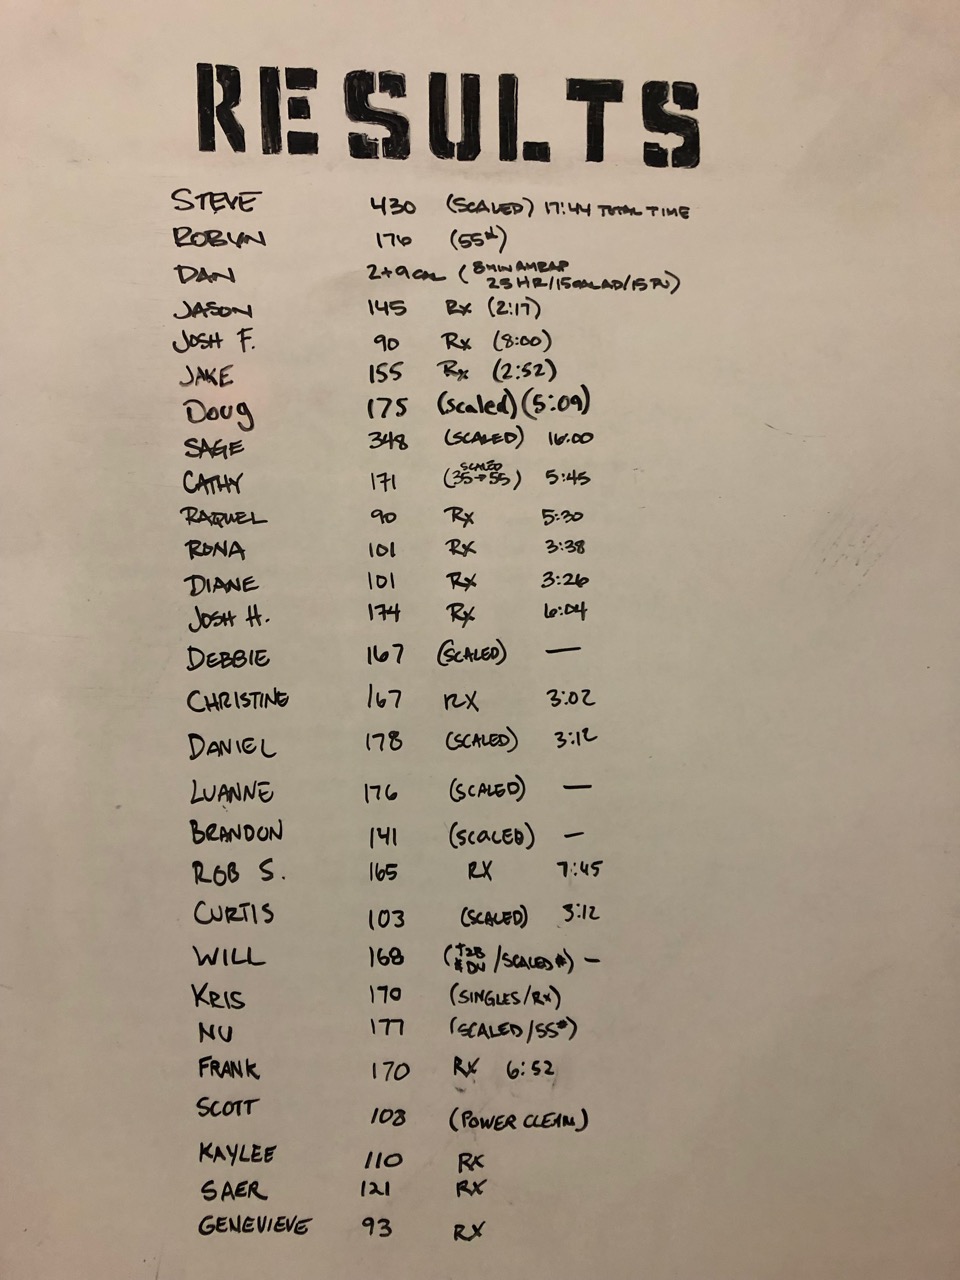 RESULTS
STEVE 430 (SCALED) 17:44 TOTAL TIME
ROBLYN 176 (55#)
DAN 2+9 CAL (8 MIN AMRAP
25 HR/15CALAD/15PU)
JASON 145 Rx (2:17)
JOSH F. 90 Rx (8:00)
JAKE 155 Rx (2:52)
Doug 175 (scaled) (5:09)
SAGE 348 (SCALED) 16:00
CATHY 171 (35→55) SCALED 5:45
RAQUEL 90 Rx 5:30
RONA 101 Rx 3:38
DIANE 101 Rx 3:26
JOSH H. 174 Rx 6:04
DEBBIE 167 (SCALED) —
CHRISTINE 167 RX 3:02
DANIEL 178 (SCALED) 3:12
LUANNE 176 (SCALED) —
BRANDON 141 (SCALED) —
ROB S. 165 RX 7:45
CURTIS 103 (SCALED) 3:12
WILL 168 (T2B #DU /SCALED#) –
KRIS 170 (SINGLES/Rx)
NU 177 (SCALED/55#)
FRANK 170 RX 6:52
SCOTT 108 (POWER CLEAN)
KAYLEE 110 RX
SAER 121 RX
GENEVIEVE 93 RX